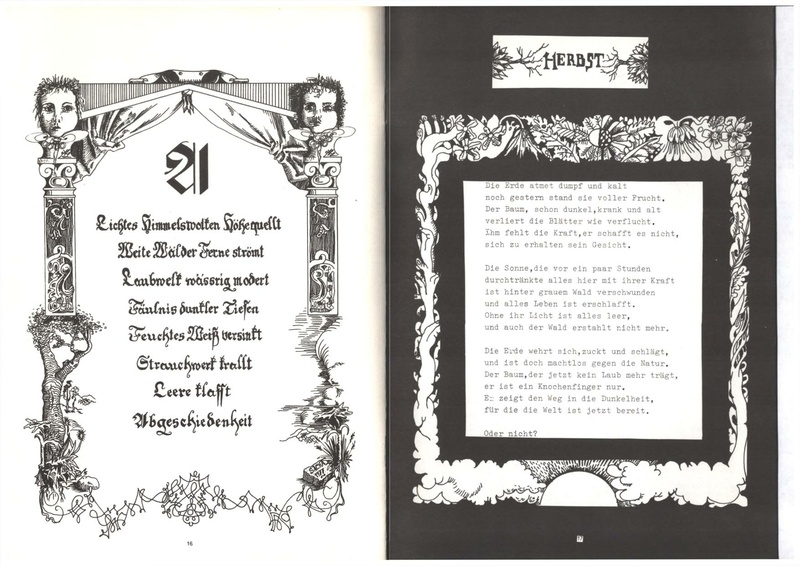 A
Lichtes Himmelswolken Höhequellt
Weite Wälder Ferne strömt
Laubwelk wässrig modert
Fäulnis dunkler Tiefen
Feuchtes Weiß versinkt
Strauchwerk krallt
Leere klafft
Abgeschiedenheit
16
HERBST
Die Erde atmet dumpf und kalt
noch gestern stand sie voller Frucht.
Der Baum, schon dunkel,krank und alt
verliert die Blätter wie verflucht.
Ihm fehlt die Kraft,er schafft es nicht,
sich zu erhalten sein Gesicht.
Die Sonne,die vor ein paar Stunden
durchtränkte alles hier mit ihrer Kraft
ist hinter grauem Wald verschwunden
und alles Leben ist erschlafft.
Ohne ihr Licht ist alles leer,
und auch der Wald erstahlt nicht mehr.
Die Erde wehrt sich,zuckt und schlägt,
und ist doch machtlos gegen die Natur.
Der Baum,der jetzt kein Laub mehr trägt,
er ist ein Knochenfinger nur.
Er zeigt den Weg in die Dunkelheit,
für die die Welt ist jetzt bereit.
Oder nicht?
17